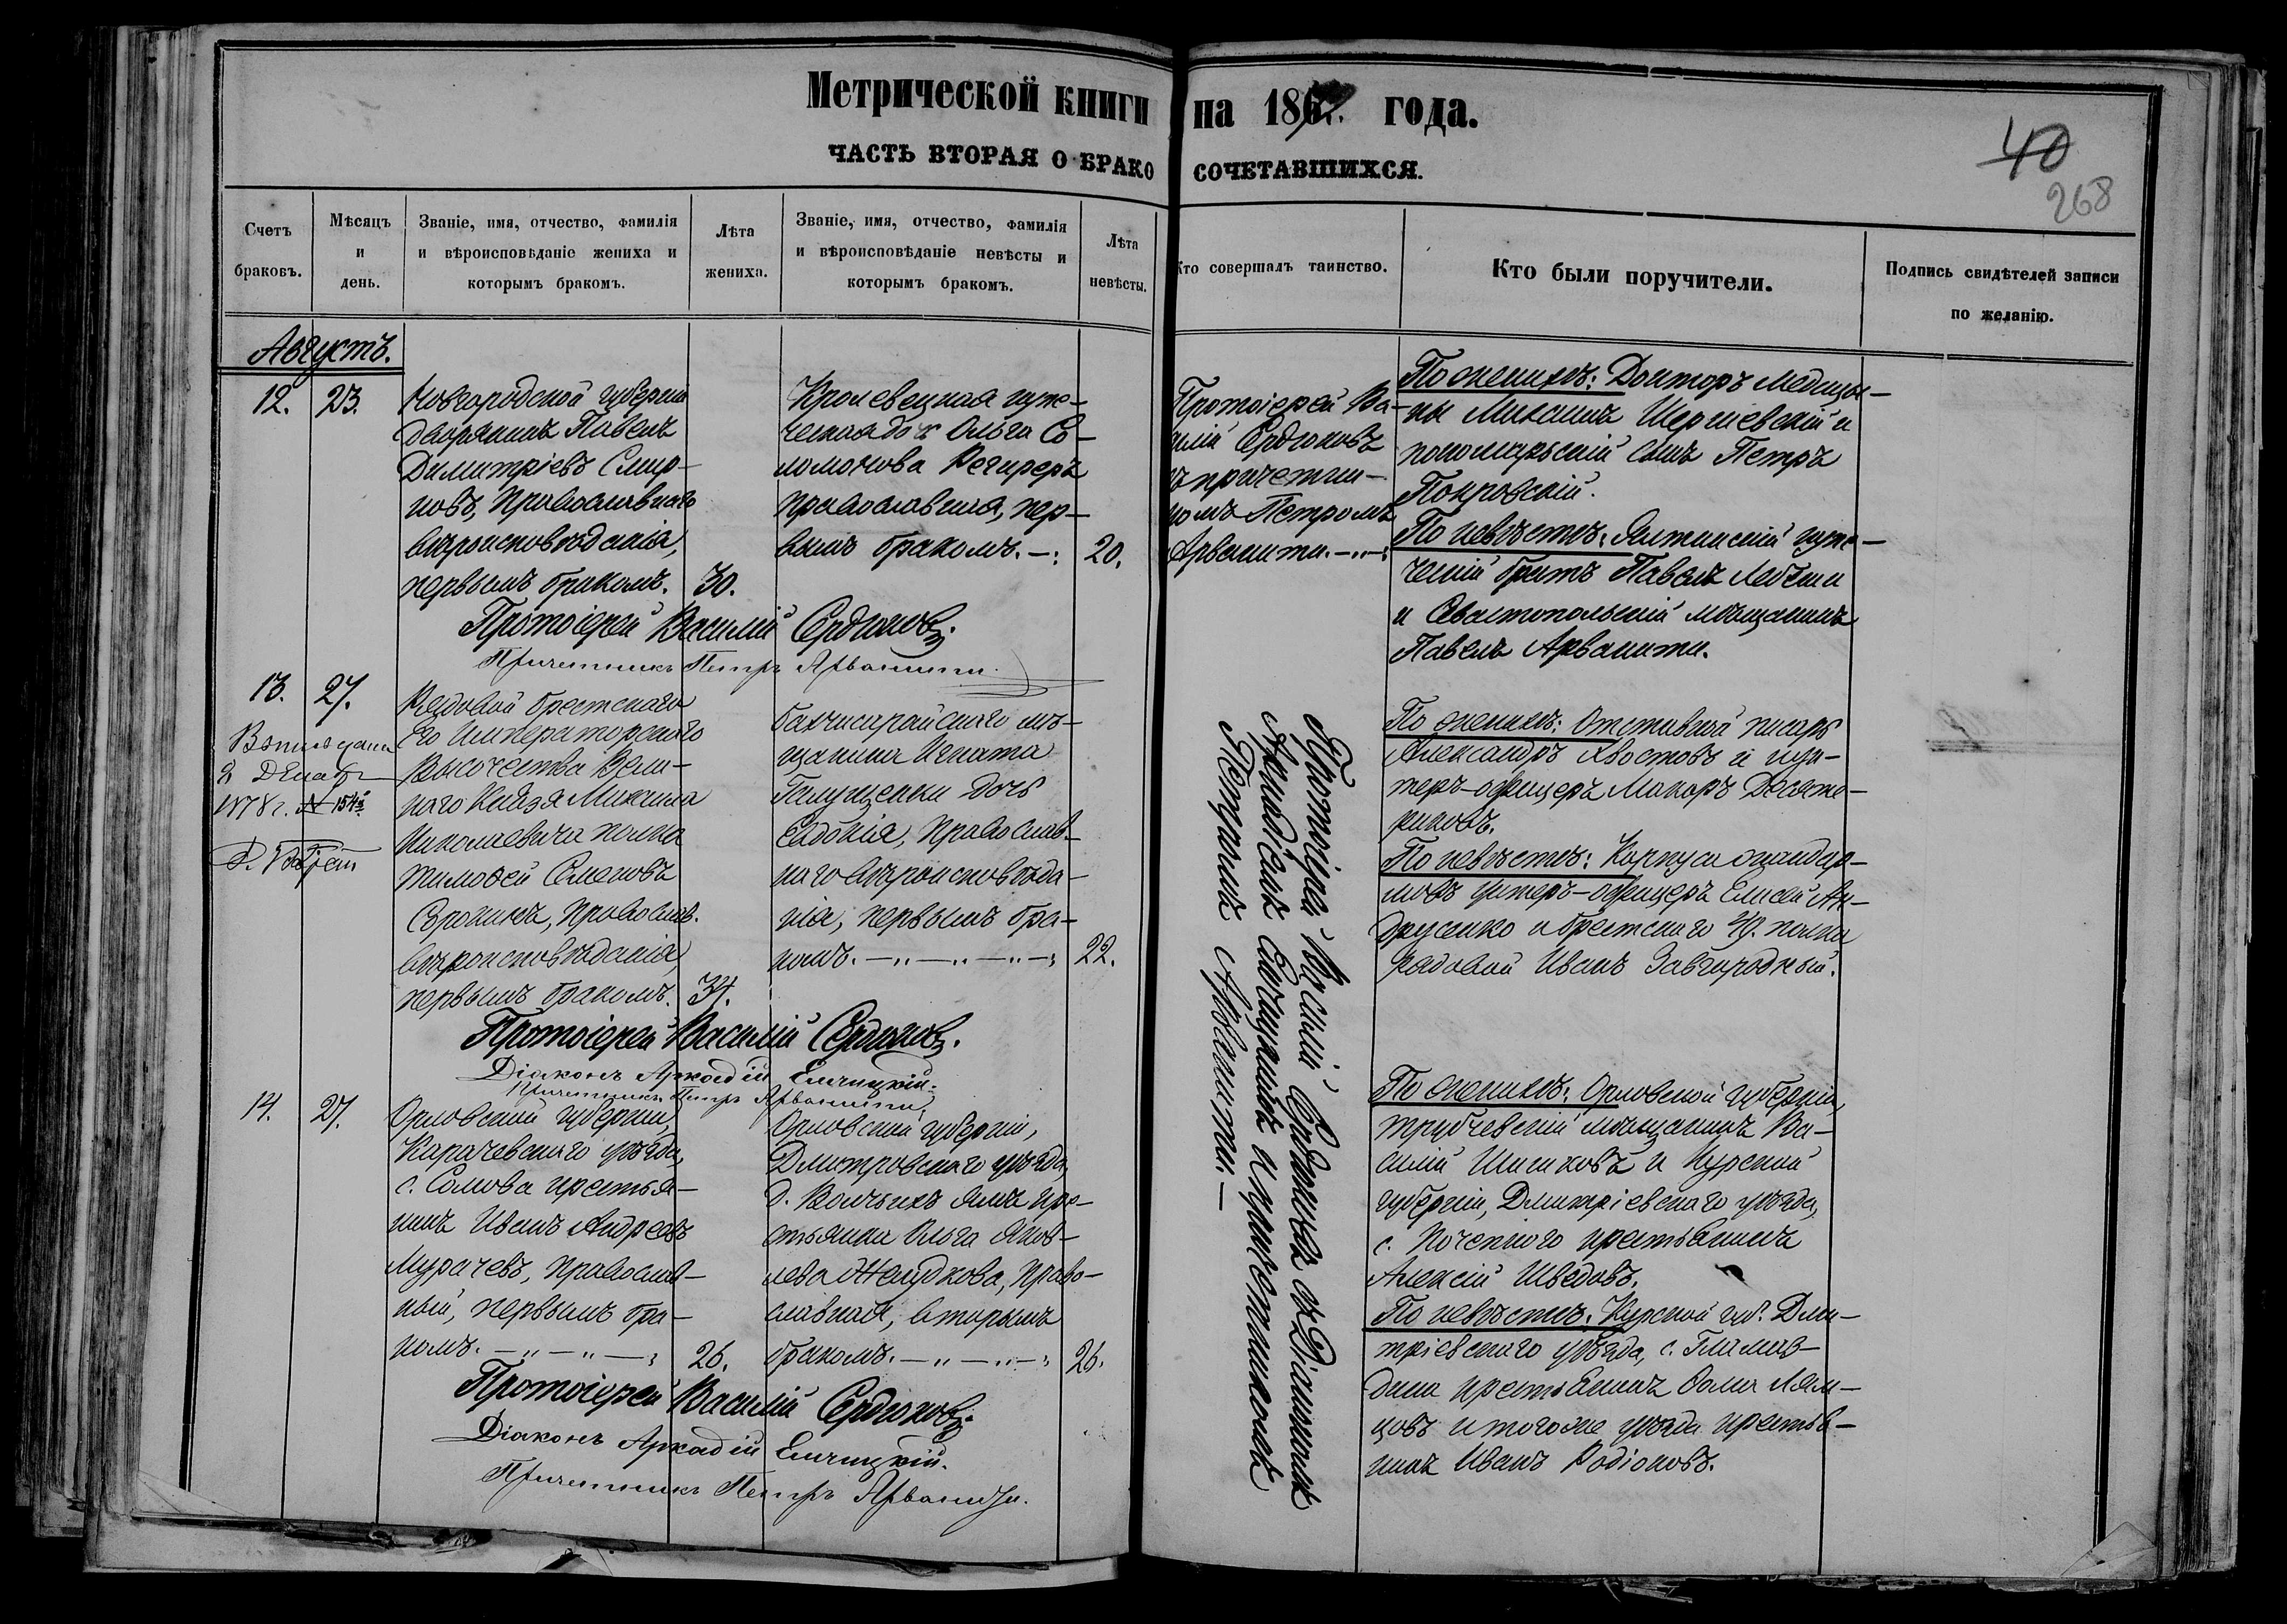 Метрической книги на 186 . года.
ЧАСТЬ ВТОРАЯ О БРАКОСОЧЕТАВШИХСЯ.
40
268
Счетъ браковъ.
Мѣсяцъ и день.
Званіе, имя, отчество, фамилія
и вѣроисповѣданіе жениха и
которымъ бракомъ.
Лѣта жениха.
Званіе, имя, отчество, фамилія
и вѣроисповѣданіе невѣсты и
которымъ бракомъ.
Лѣта невѣсты.
Кто совершалъ таинство.
Кто были поручители.
Подпись свидѣтелей записи
по желанію.
Августъ.
12. 23.
Новгородской губерніи
дворянинъ Павелъ
Димитріевъ Смир-
новъ, Православнаго
вѣроисповѣданія,
первымъ бракомъ. 30.
Кролевецкая купе-
ческая дочь Ольга Со-
ломонова
православная, пер-
вымъ бракомъ. —: 20.
Протоіерей Ва-
силій Сердюковъ
съ причетни-
комъ Петромъ
Арванити. —„—:
По женихѣ: Докторъ Медицы-
ны Михаилъ и
пономарьскій сынъ Петръ
Покровскій.
По невѣстѣ: Ялтинскій купе-
ческій братъ Павелъ
и Севастопольскій мѣщанинъ
Павелъ Арванити.
Протоіерей Василій Сердюковъ.
Причетникъ Петръ Арванити.
13. 27.
8 Декабр
1878 г. №
Рядовой Брестскаго
Его Императорскаго
Высочества Вели-
каго Князя Михаила
Николаевича полка
Тимофей Семеновъ
Православ.
вѣроисповѣданія,
первымъ бракомъ. 34.
Бахчисарайскаго мѣ-
щанина Игната
Галущенки дочь
Евдокія, Православ-
наго вѣроисповѣда-
нія, первымъ бра-
комъ. —„—„—„—: 22.
Протоіерей Василій Сердюковъ съ Діакономъ
Аркадіемъ Елчицкимъ и причетникомъ
Петромъ Арванити. —
По женихѣ: Отставной писарь
Александръ Хвостовъ и ун-
теръ-офицеръ Макаръ Десяте-
риковъ.
По невѣстѣ: Корпуса жандар-
мовъ унтеръ-офицеръ Елисей Ан-
друсенко и Брестскаго 49. полка
рядовой Иванъ Завгородный.
Протоіерей Василій Сердюковъ.
Діаконъ Аркадій Елчицкій.
Причетникъ Петръ Арванити.
14. 27.
Орловской губерніи,
Карачевскаго уѣзда,
с. Сомова крестья-
нинъ Иванъ Андреевъ
Мурачевъ, Православ-
ный, первымъ бра-
комъ. —„—„—: 26.
Орловской губерніи,
Дмитровскаго уѣзда,
д. Волчьихъ Ямъ кре-
стьянка Ольга Яков-
лева Желудкова, Право-
славная, вторымъ
бракомъ. —„—„—: 26.
По женихѣ: Орловской губерніи,
трубчевскій мѣщанинъ Ва-
силій Шишковъ и Курской
губерніи, Дмитріевскаго уѣзда,
с. Почепного крестьянинъ
Алексій Шведовъ.
По невѣстѣ: Курской губ. Дми-
тріевскаго уѣзда, с.
крестьянинъ Фома Лям-
цовъ и того же уѣзда крестья-
нинъ Иванъ Родіоновъ.
Протоіерей Василій Сердюковъ.
Діаконъ Аркадій Елчицкій.
Причетникъ Петръ Арванити.